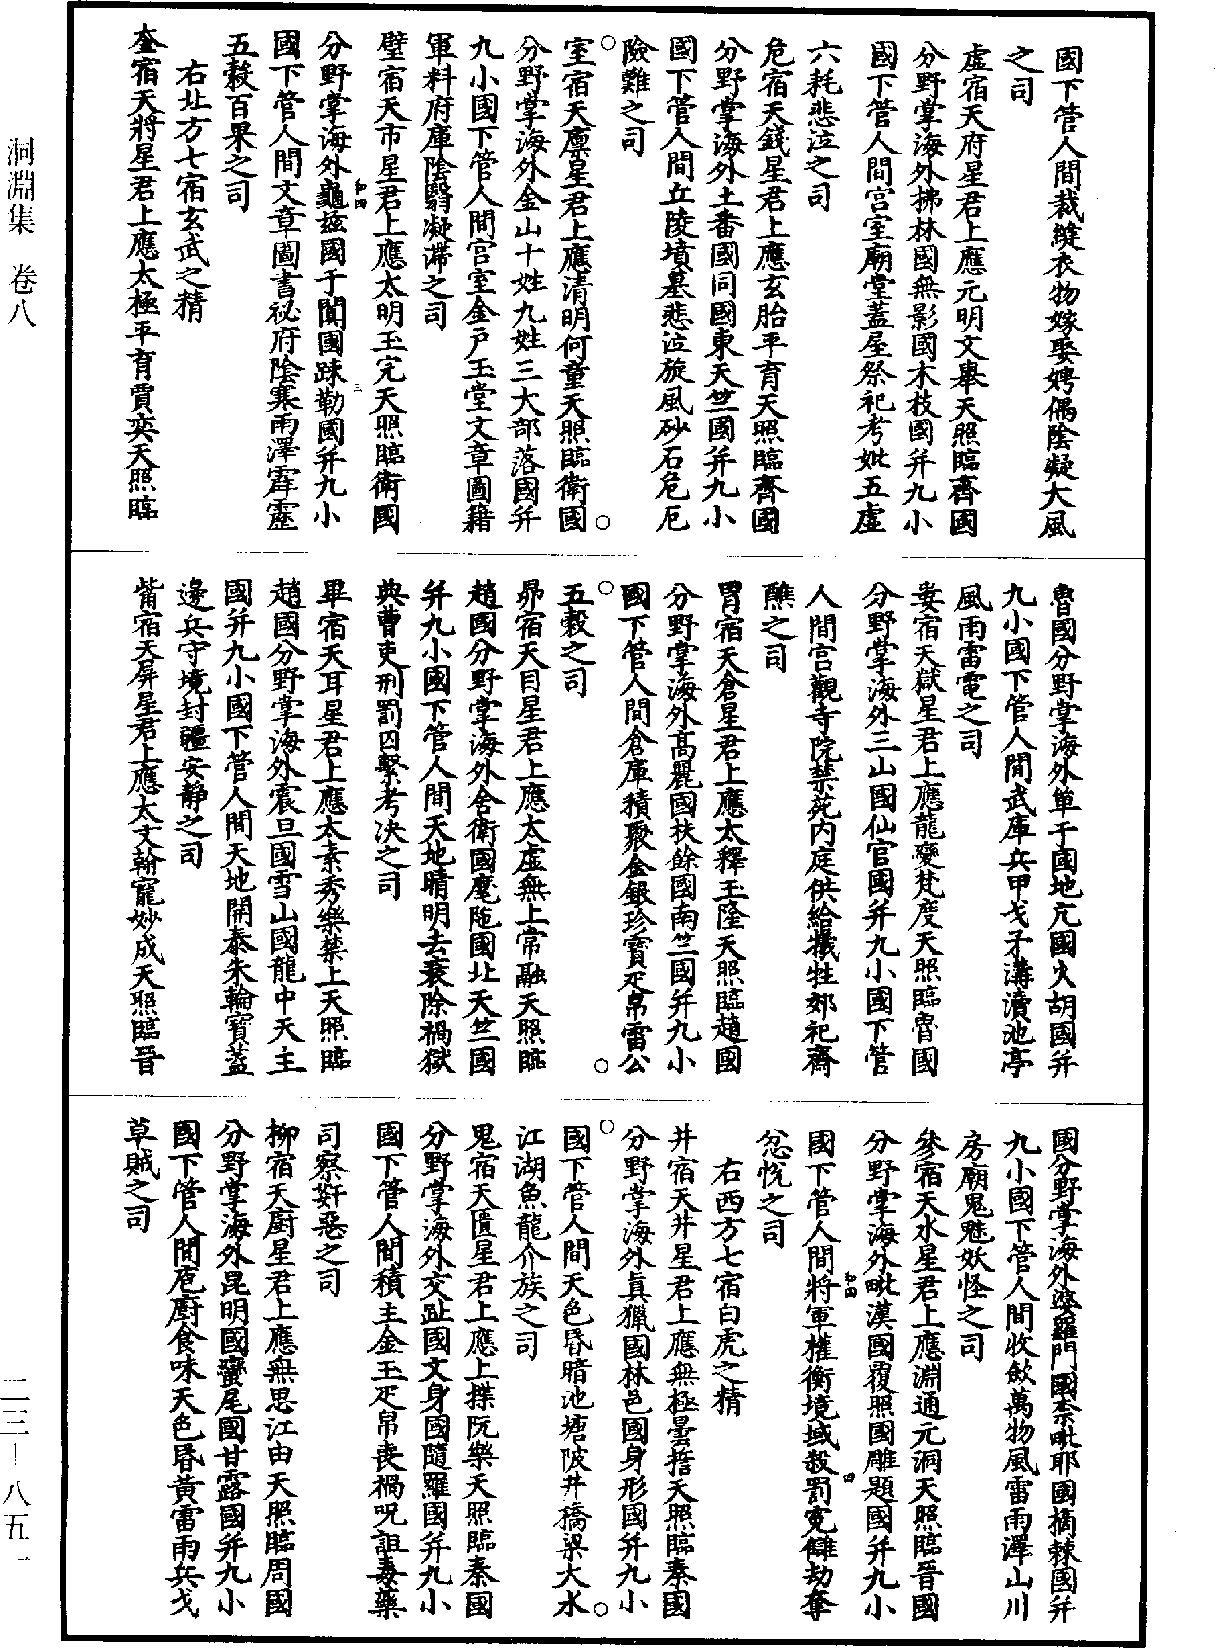 國下管人間裁縫衣物嫁娶娉偶陰凝大風
之司
虛宿天府星君上應元明文舉天照臨齊國
分野掌海外拂林國無影國木枝國并九小
國下管人間宮室廟堂蓋屋祭祀考妣五虛
六耗悲泣之司
危宿天錢星君上應玄胎平育天照臨齊國
分野掌海外土番國同國東天竺國并九小
國下管人間丘陵墳墓悲泣旋風砂石危厄
險難之司
室宿天廩星君上應清明何童天照臨衛國
分野掌海外金山十姓九姓三大部落國并
九小國下管人間宮室金戶玉堂文章圖籍
軍料府庫陰翳凝滯之司
壁宿天市星君上應太明玉完天照臨衛國
分野掌海外龜玆國于闐國踈勒國并九小
國下管人間文章圖書祕府陰寒雨澤霹靂
五穀百果之司
右北方七宿玄武之精
奎宿天將星君上應太極平育賈奕天照臨
魯國分野掌海外單于國地亢國火胡國并
九小國下管人間武庫兵甲戈矛溝瀆池亭
風雨雷電之司
婁宿天獄星君上應龍變梵度天照臨魯國
分野掌海外三山國仙官國并九小國下管
人間宮觀寺院禁苑內庭供給犧牲郊祀齋
醮之司
胃宿天倉星君上應太釋玉隆天照臨趙國
分野掌海外高麗國扶餘國南竺國并九小
國下管人間倉庫積聚金銀珍寶疋帛雷公
五穀之司
昴宿天目星君上應太虛無上常融天照臨
趙國分野掌海外舍衛國麾陁國北天竺國
并九小國下管人間天地晴明去衰除禍獄
典曹吏刑罰囚繫考決之司
畢宿天耳星君上應太素秀樂禁上天照臨
趙國分野掌海外震旦國雪山國龍中天主
國并九小國下管人間天地開泰朱輪寶蓋
邊兵守境封疆安靜之司
觜宿天屏星君上應太文翰寵妙成天照臨晉
國分野掌海外婆羅門國柰毗耶國摘棘國并
九小國下管人間收歛萬物風雷雨澤山川
房廟鬼魅妖怪之司
參宿天水星君上應淵通元洞天照臨晉國
分野掌海外毗漢國覆照國雕題國并九小
國下管人間將軍權衡境域殺罰寃讎劫奪
忿恱之司
右西方七宿白虎之精
井宿天井星君上應無極曇誓天照臨秦國
分野掌海外真獵國林邑國身形國并九小
國下管人間天色昏暗池塘陂井橋梁大水
江湖魚龍介族之司
鬼宿天匱星君上應上揲阮樂天照臨秦國
分野掌海外交趾國文身國隨羅國并九小
國下管人間積主金玉疋帛喪禍呪詛毒藥
司察姧惡之司
柳宿天廚星君上應無思江由天照臨周國
分野掌海外昆明國蠻尾國甘露國并九小
國下管人間庖廚食味天色昏黃雷雨兵戈
草賊之司
洞淵集 卷八
二三—八五一